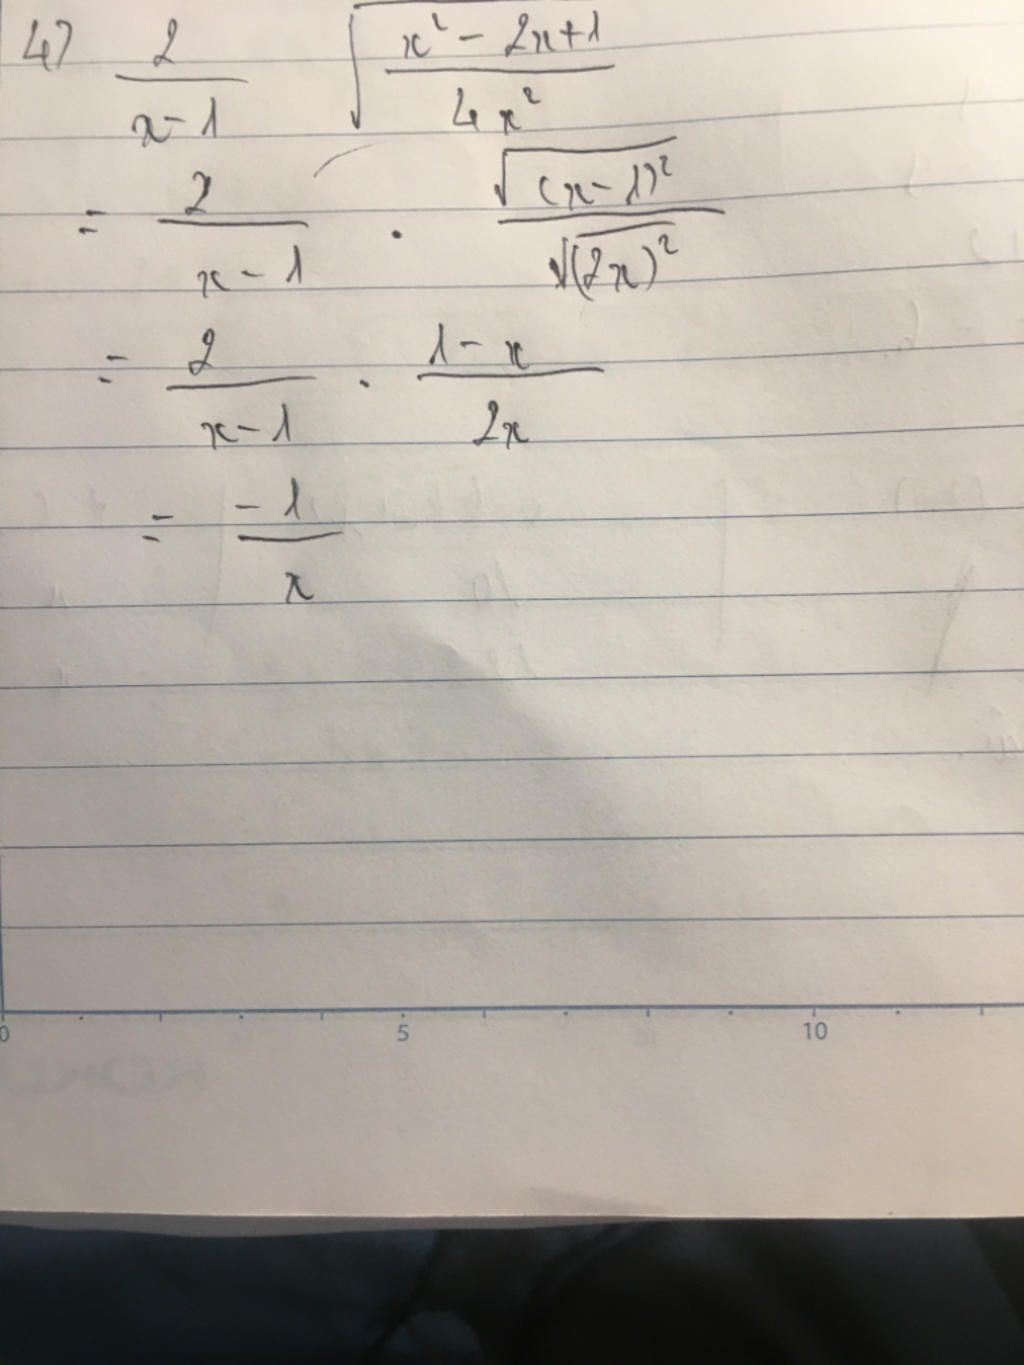 4) 2/(x-1) √((x² - 2x+1)/(4x²))
= 2/(x-1) . √((x-1)²)/√((2x)²)
= 2/(x-1) . (1-x)/(2x)
= -1/x
0 5 10